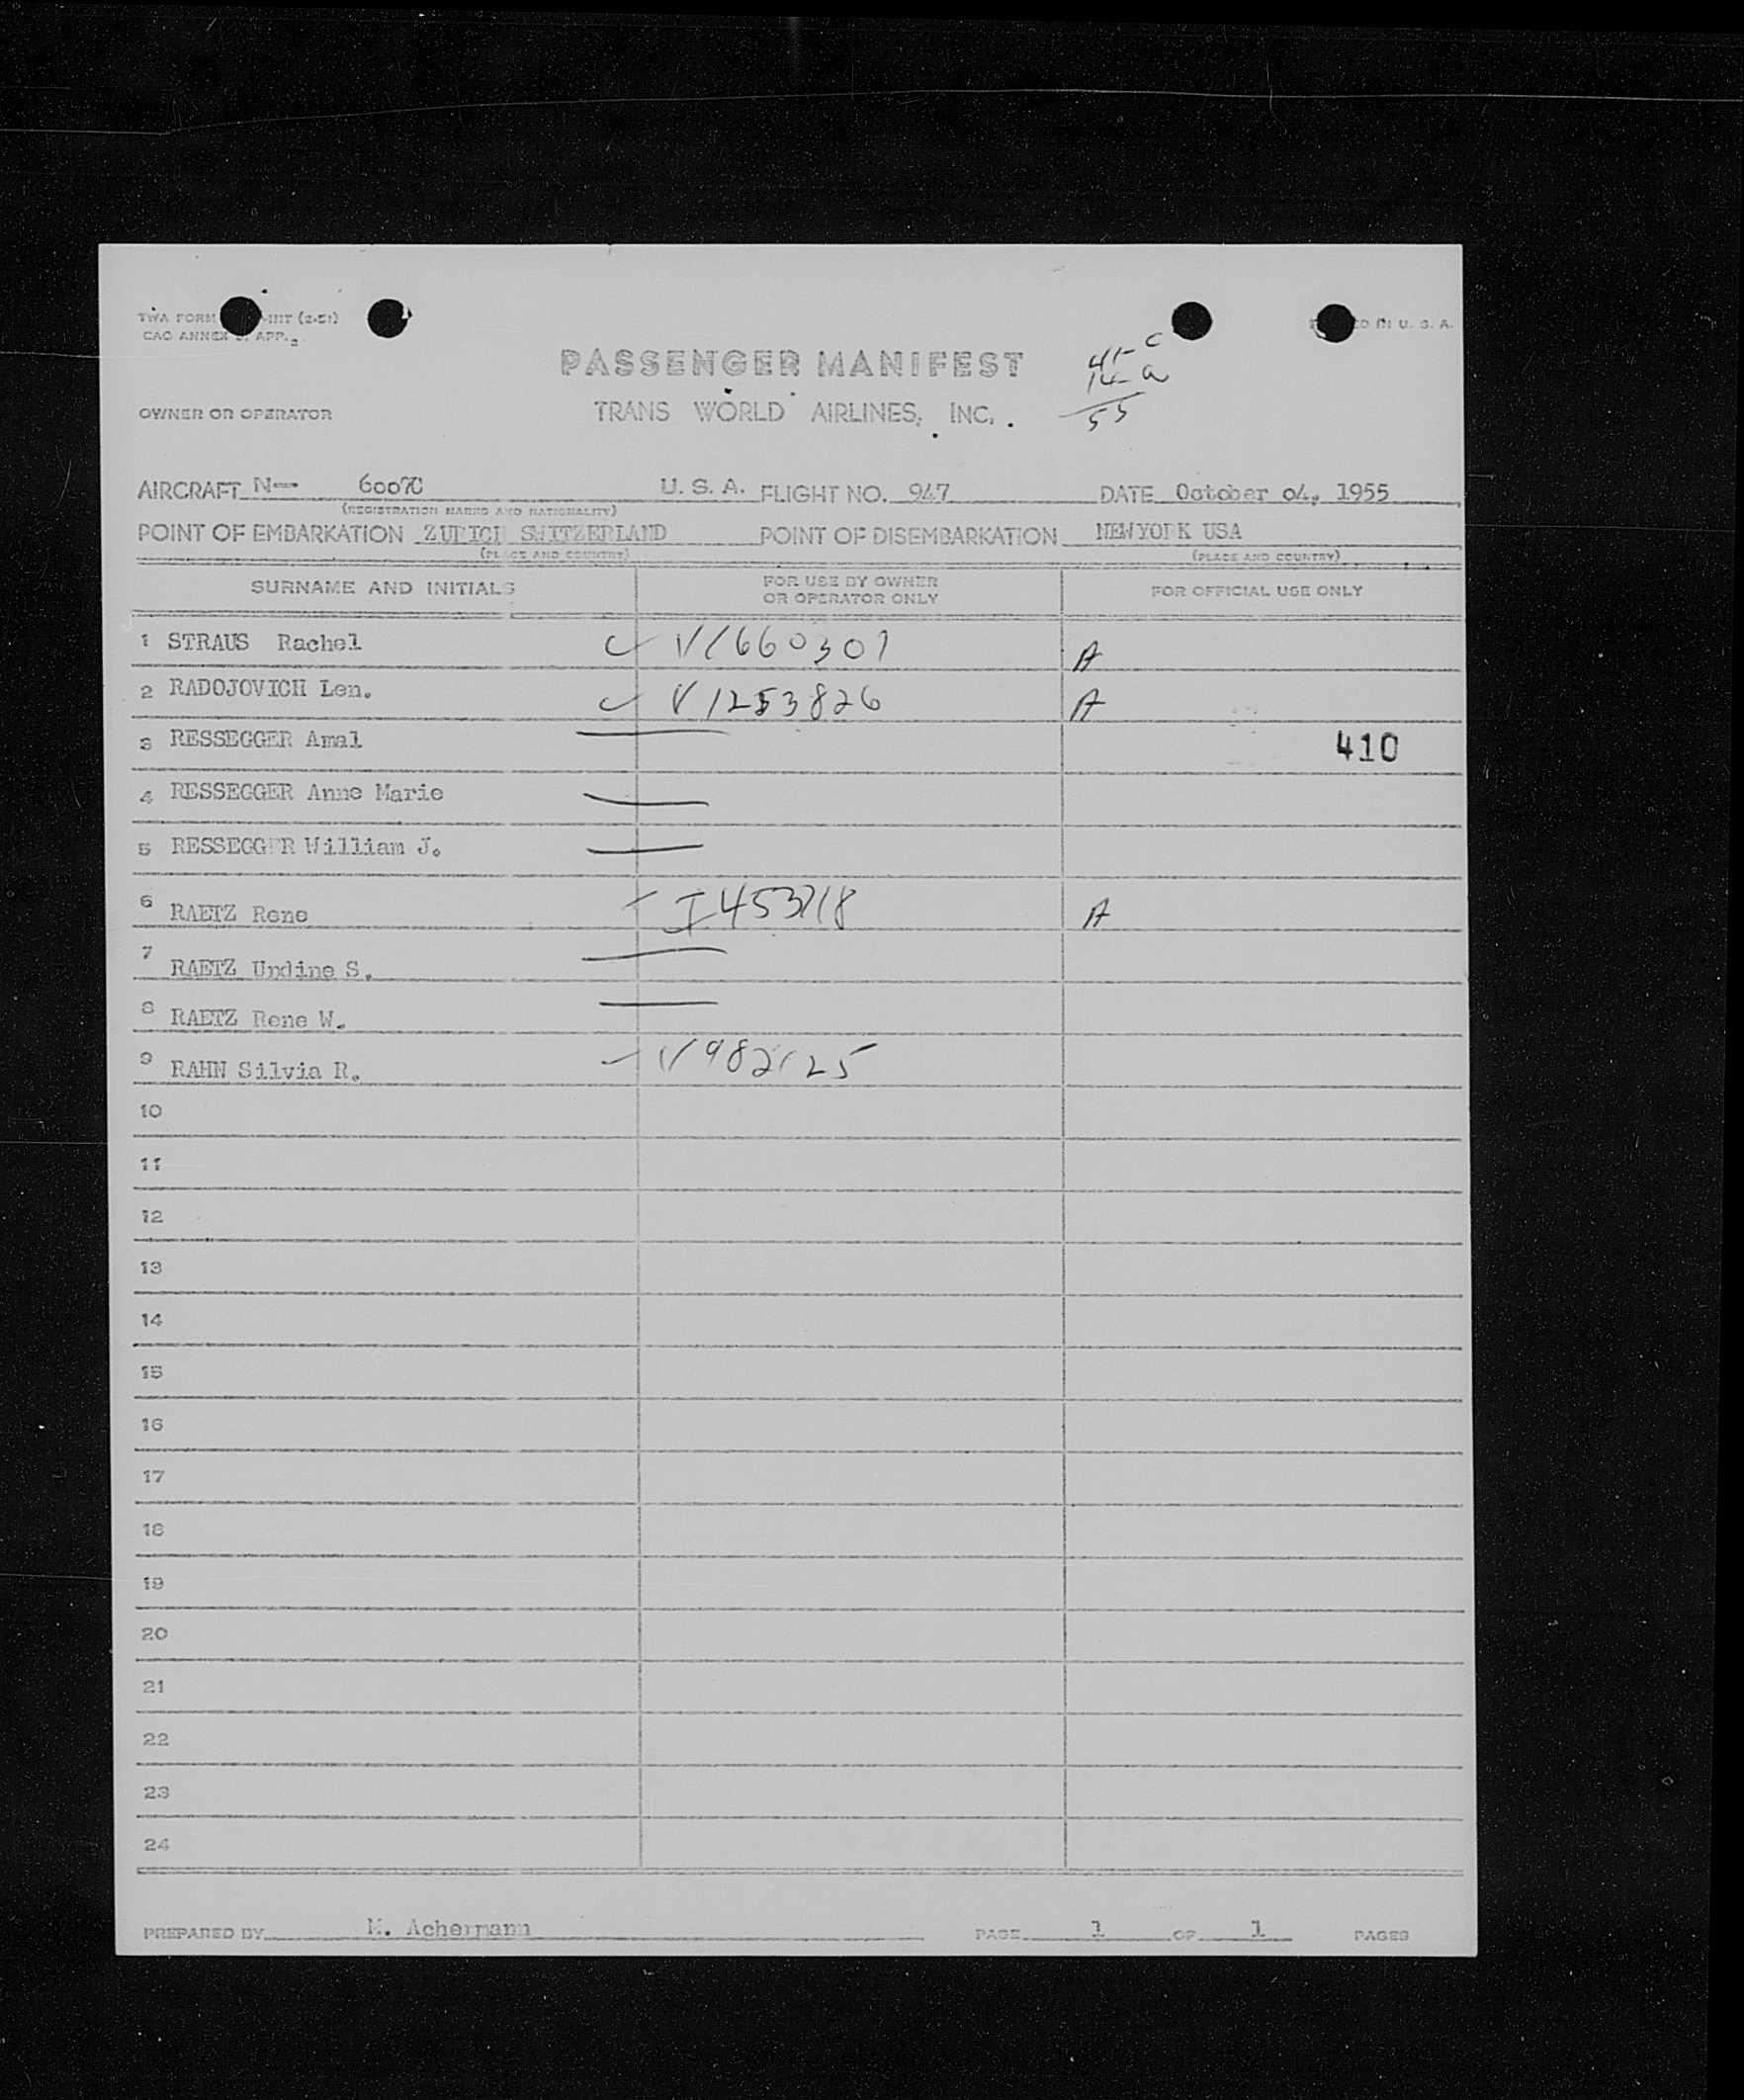 TWA FORM -INT (2-51)
CAO ANNEX 9. APP.
D IN U. S. A.
PASSENGER MANIFEST
41- C
14- a
55
OWNER OR OPERATOR TRANS WORLD AIRLINES, INC.
AIRCRAFT N-- 6007C U. S. A. FLIGHT NO. 947 DATE October 04, 1955
(REGISTRATION MARKS AND NATIONALITY)
POINT OF EMBARKATION ZURICH SWITZERLAND POINT OF DISEMBARKATION NEWYORK USA
(PLACE AND COUNTRY) (PLACE AND COUNTRY)
SURNAME AND INITIALS FOR USE BY OWNER OR OPERATOR ONLY FOR OFFICIAL USE ONLY
1 STRAUS Rachel V1660301 A
2 RADOJOVICH Len. V1253826 A
3 RESSEGGER Amal 410
4 RESSEGGER Anne Marie
5 RESSEGGER William J.
6 RAETZ Rene I453718 A
7 RAETZ Undine S.
8 RAETZ Rene W.
9 RAHN Silvia R. V982125
10
11
12
13
14
15
16
17
18
19
20
21
22
23
24
PREPARED BY M. Achermann PAGE 1 OF 1 PAGES